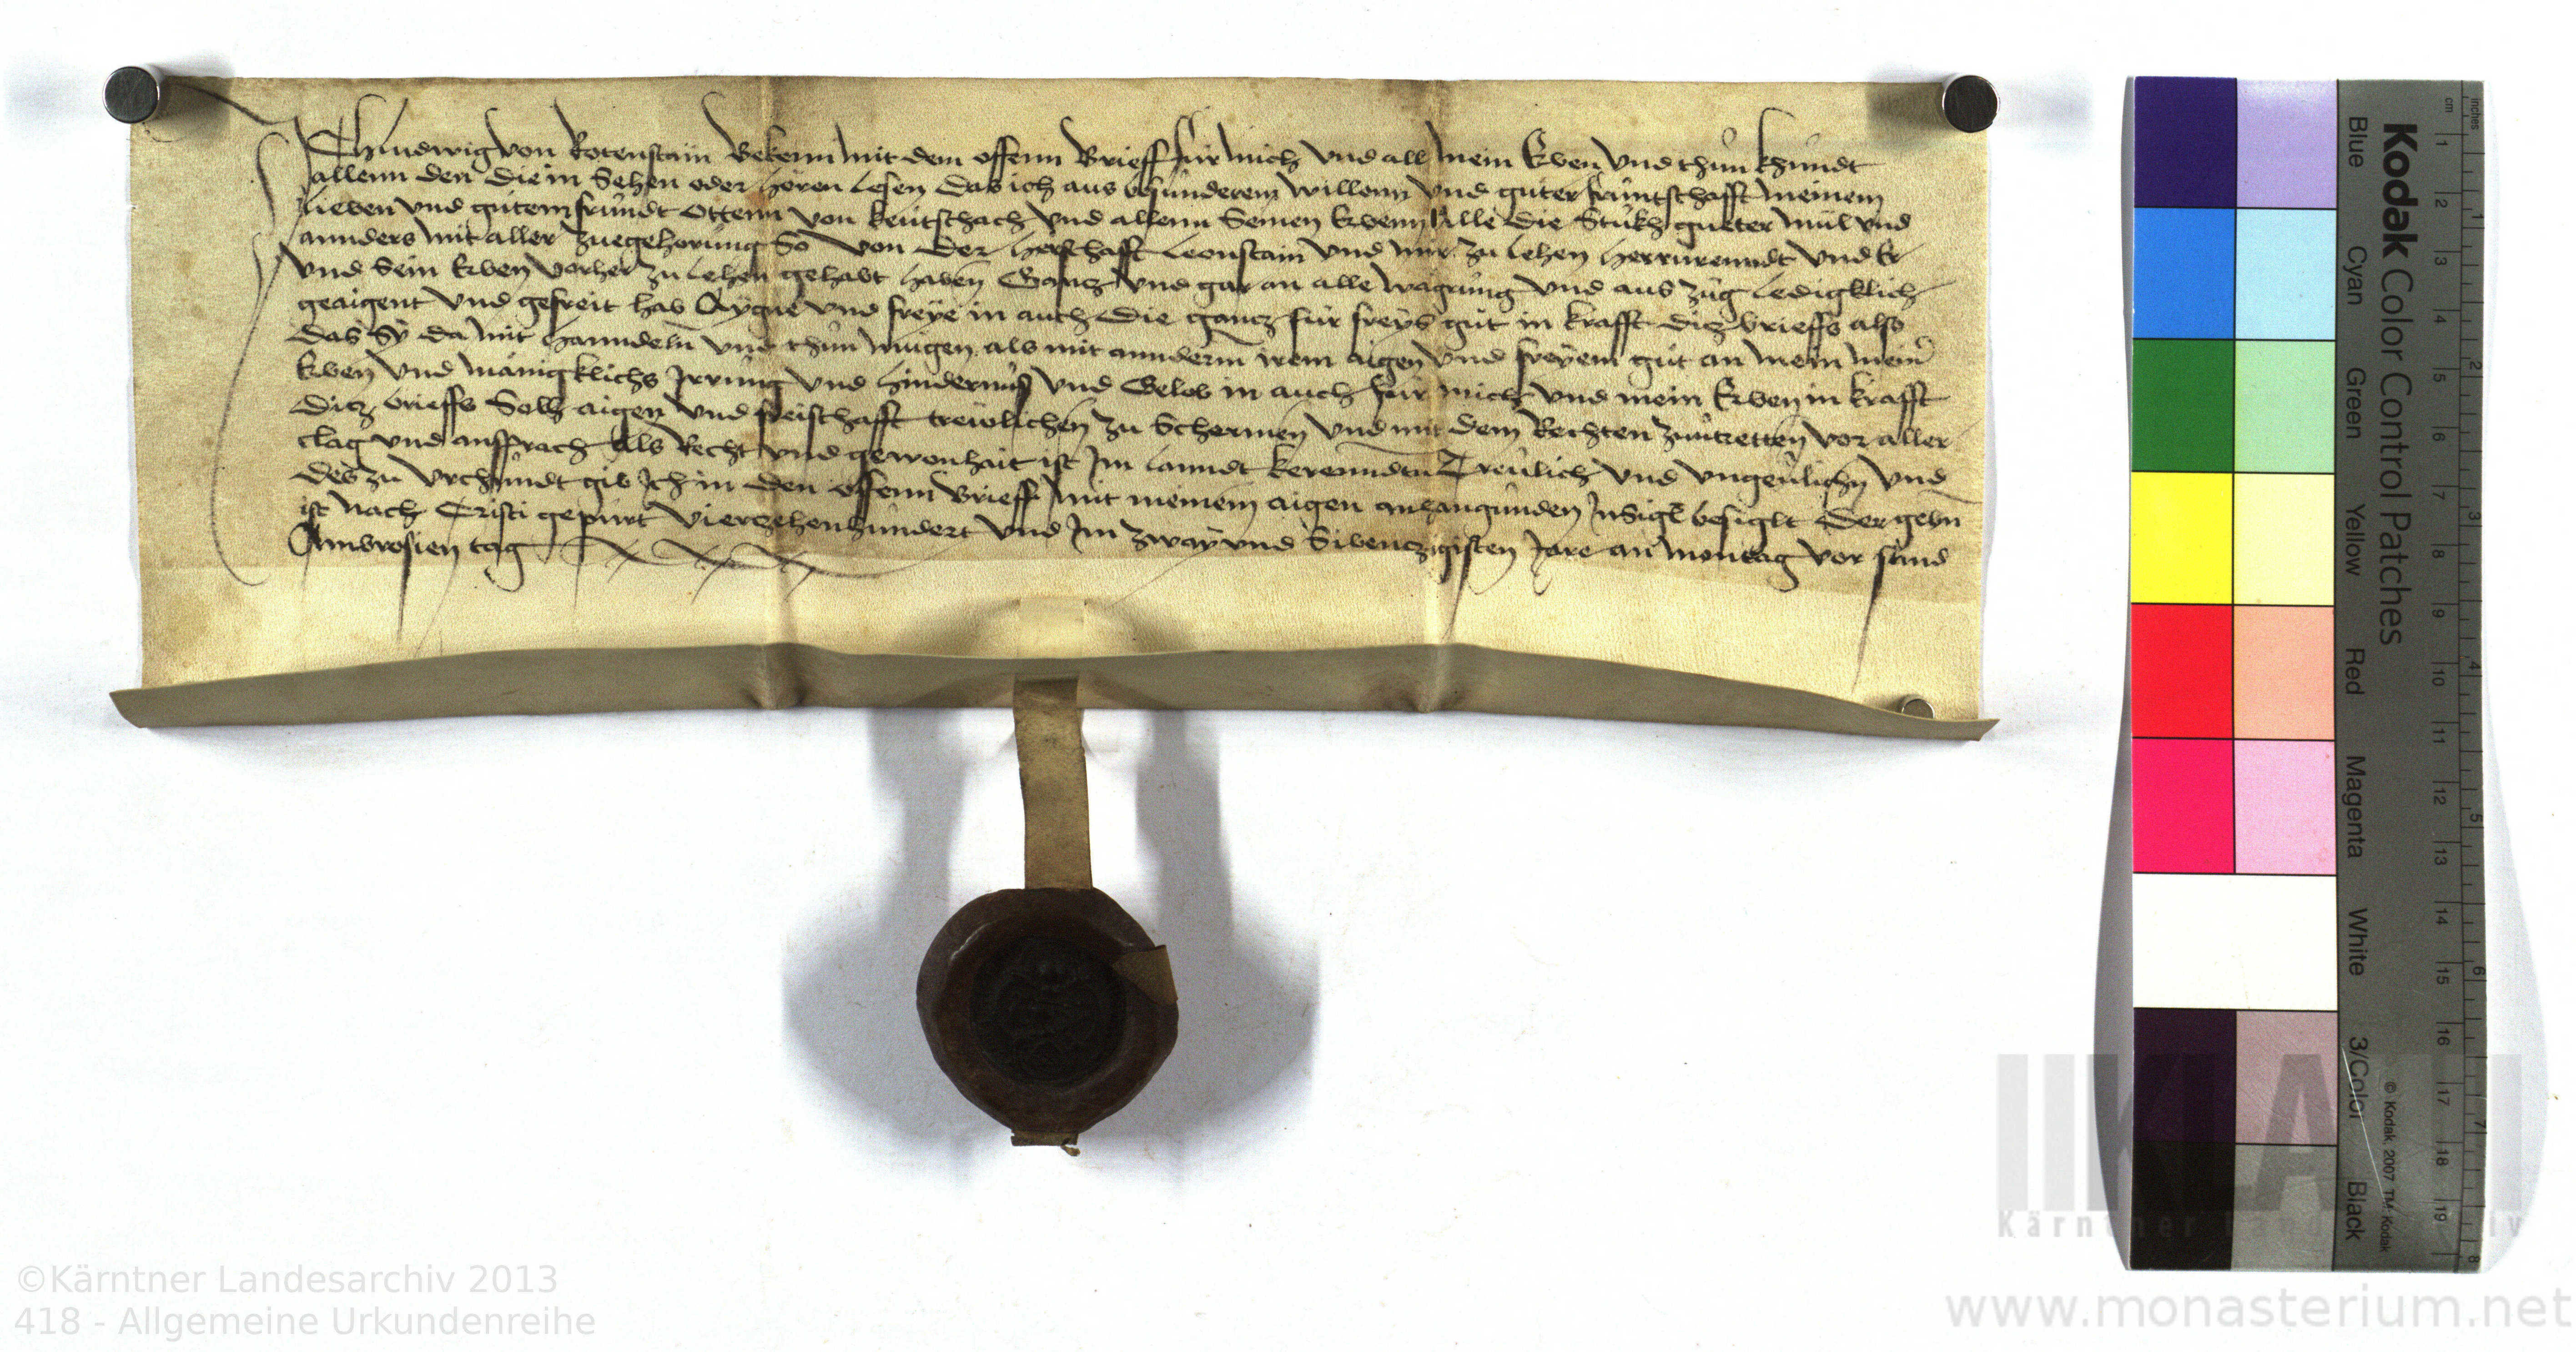 Ich Ludwig von Rotenstain Bekenn mit dem offenn Brieff für mich vnd all mein Erben vnd thun khundt
allenn den die in Sehen oder hören lesen das ich aus besunderem willenn vnd guter fruntschafft meinem
lieben vnd gutem frundt Ottenn von keutschach vnd allenn Seinen Erbenn Alle die Stukh gueter mül vnd
annders mit aller zuegehorung So von der herschafft Leonstain vnd mir zu lehen herrurenndt vnd Er
vnd Sein Erben vorher zu lehen gehabt haben Gancz vnd gar an alle wagrung vnd aus zug ledigklich
geaigent vnd gefreit hab Aygne vnd freye in auch die gancz für freys gut in krafft dicz brieffs also
das Sy da mit hanndeln vnd thun mugen als mit annderm irem aigen vnd freyem gut an mein meiner
Erben vnd manigklichs Irrung vnd hindernuss vnd Gelob in auch für mich vnd mein Erben in krafft
dicz brieffs Solh aigen vnd freischafft trewlichen zu Schermen vnd mit dem Rechten zuuertretten vor aller
clag vnd ansprach Als Recht vnd gewonhait ist Im lanndt kerenndtn Treulich vnd vngeulichn vnd
des zu vrchundt gib Ich in den offenn Brieff mit meinem aigen anhangunden InSigl besiglt Der gebn
ist nach Cristi gepurt vierczehenhundert vnd Im zway vnd Sibenczigisten Jare an montag vor sand
Ambrosien tag
Kodak Color Control Patches
Blue Cyan Green Yellow Red Magenta White 3/Color Black
© Kodak, 2007 TM: Kodak
inches 1 2 3 4 5 6 7 8
cm 1 2 3 4 5 6 7 8 9 10 11 12 13 14 15 16 17 18 19
KLA
Kärntner Landesarchiv
©Kärntner Landesarchiv 2013
418 - Allgemeine Urkundenreihe
www.monasterium.net